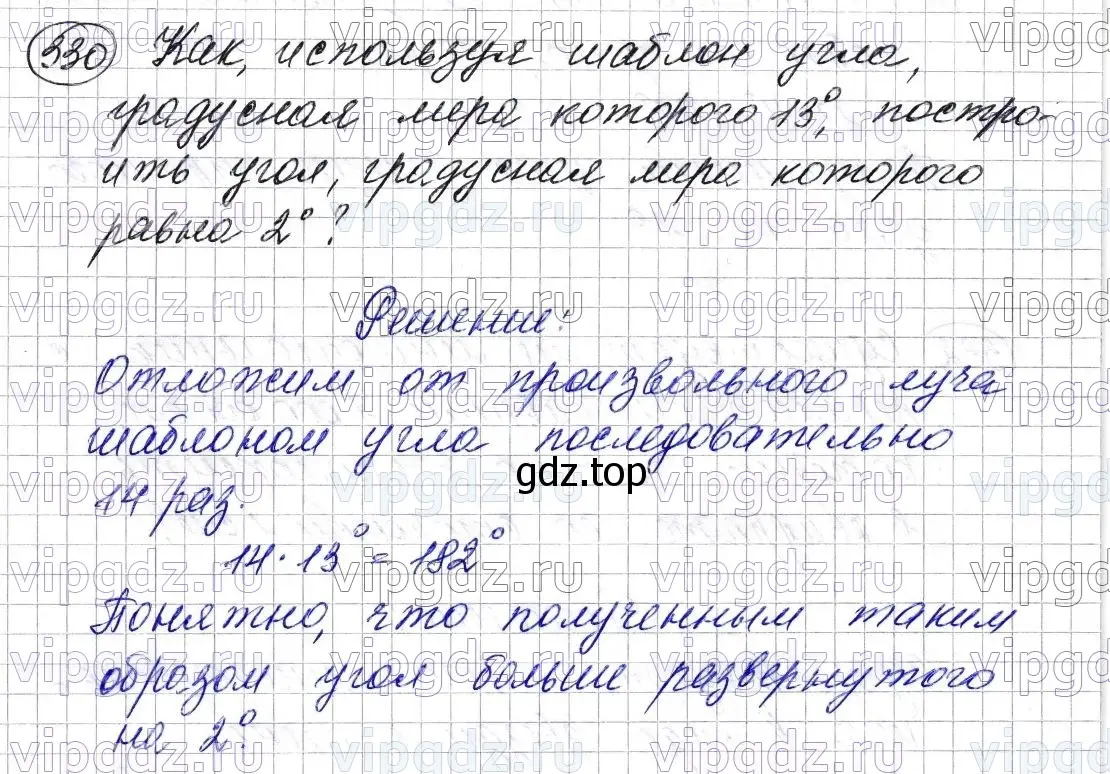 330 Как, используя шаблон угла,
градусная мера которого 13°, постро-
ить угол, градусная мера которого
равна 2°?
Решение:
Отложим от произвольного луча
шаблоном угла последовательно
gdz.top
14 раз.
14 · 13° = 182°
Понятно, что полученным таким
образом угол больше развернутого
на 2°.
vipgdz.ru